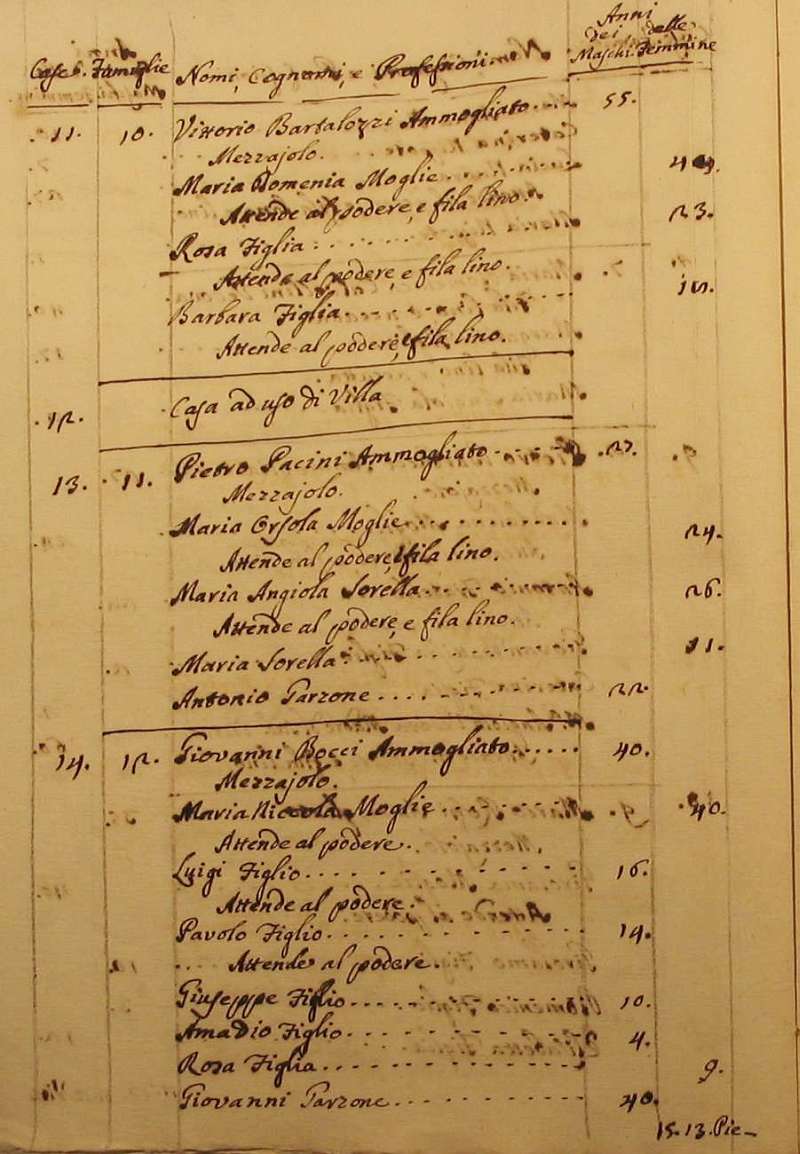 Anni
dei delle
Case. Famiglie Nomi, Cognomi, e Professioni. Maschi. Femmine
11. 10. Vittorio Bartalozzi Ammogliato 55.
Mezzajolo.
Maria Domenia Moglie
Attende al podere, e fila lino. 23.
Rosa Figlia
Attende al podere, e fila lino.
Barbara Figlia 15.
Attende al podere, e fila lino.
12. Casa ad uso di Villa
13. 11. Pietro Pacini Ammogliato 27.
Mezzajolo.
Maria Orsola Moglie 24.
Attende al podere, e fila lino.
Maria Angiola Sorella 26.
Attende al podere, e fila lino.
Maria Sorella 11.
Antonio Garzone 22.
14. 12. Giovanni Bocci Ammogliato 40.
Mezzajolo.
Maria Niccola Moglie 40.
Attende al podere.
Luigi Figlio 16.
Attende al podere.
Pavolo Figlio 14.
Attende al podere.
Giuseppe Figlio 10.
Amadio Figlio 4.
Rosa Figlia 9.
Giovanni Garzone 40.
15. 13. Pie-